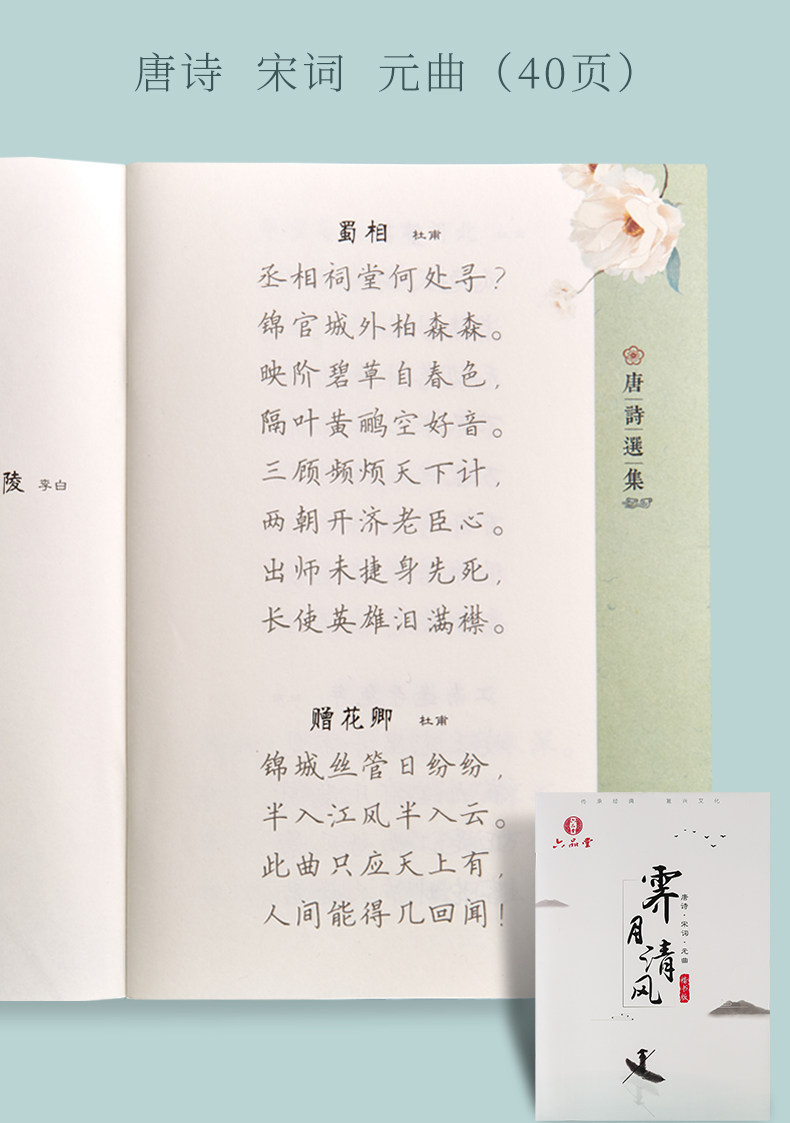 唐诗 宋词 元曲（40页）
陵 李白
蜀相 杜甫
丞相祠堂何处寻？
锦官城外柏森森。
映阶碧草自春色，
隔叶黄鹂空好音。
三顾频烦天下计，
两朝开济老臣心。
出师未捷身先死，
长使英雄泪满襟。
赠花卿 杜甫
锦城丝管日纷纷，
半入江风半入云。
此曲只应天上有，
人间能得几回闻！
唐詩選集
传承经典 复兴文化
六品堂
霁月清风
唐诗·宋词·元曲
楷书版